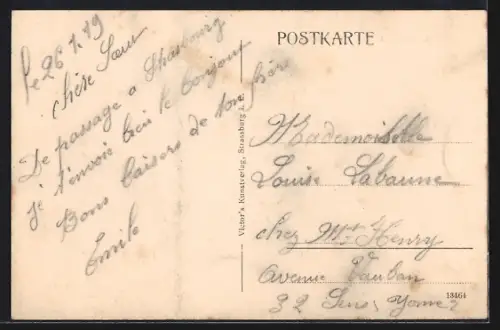 POSTKARTE
Le 26.1.19
Chère Sœur
De passage a Strasbourg
je t'envoie bien le bonjour
Bons baisers de ton frère
Emile
Victor's Kunstverlag, Strassburg i.
Mademoiselle
Louise Labaune
chez Mr Henry
Avenue Vauban
32 Sens, Yonne
13464